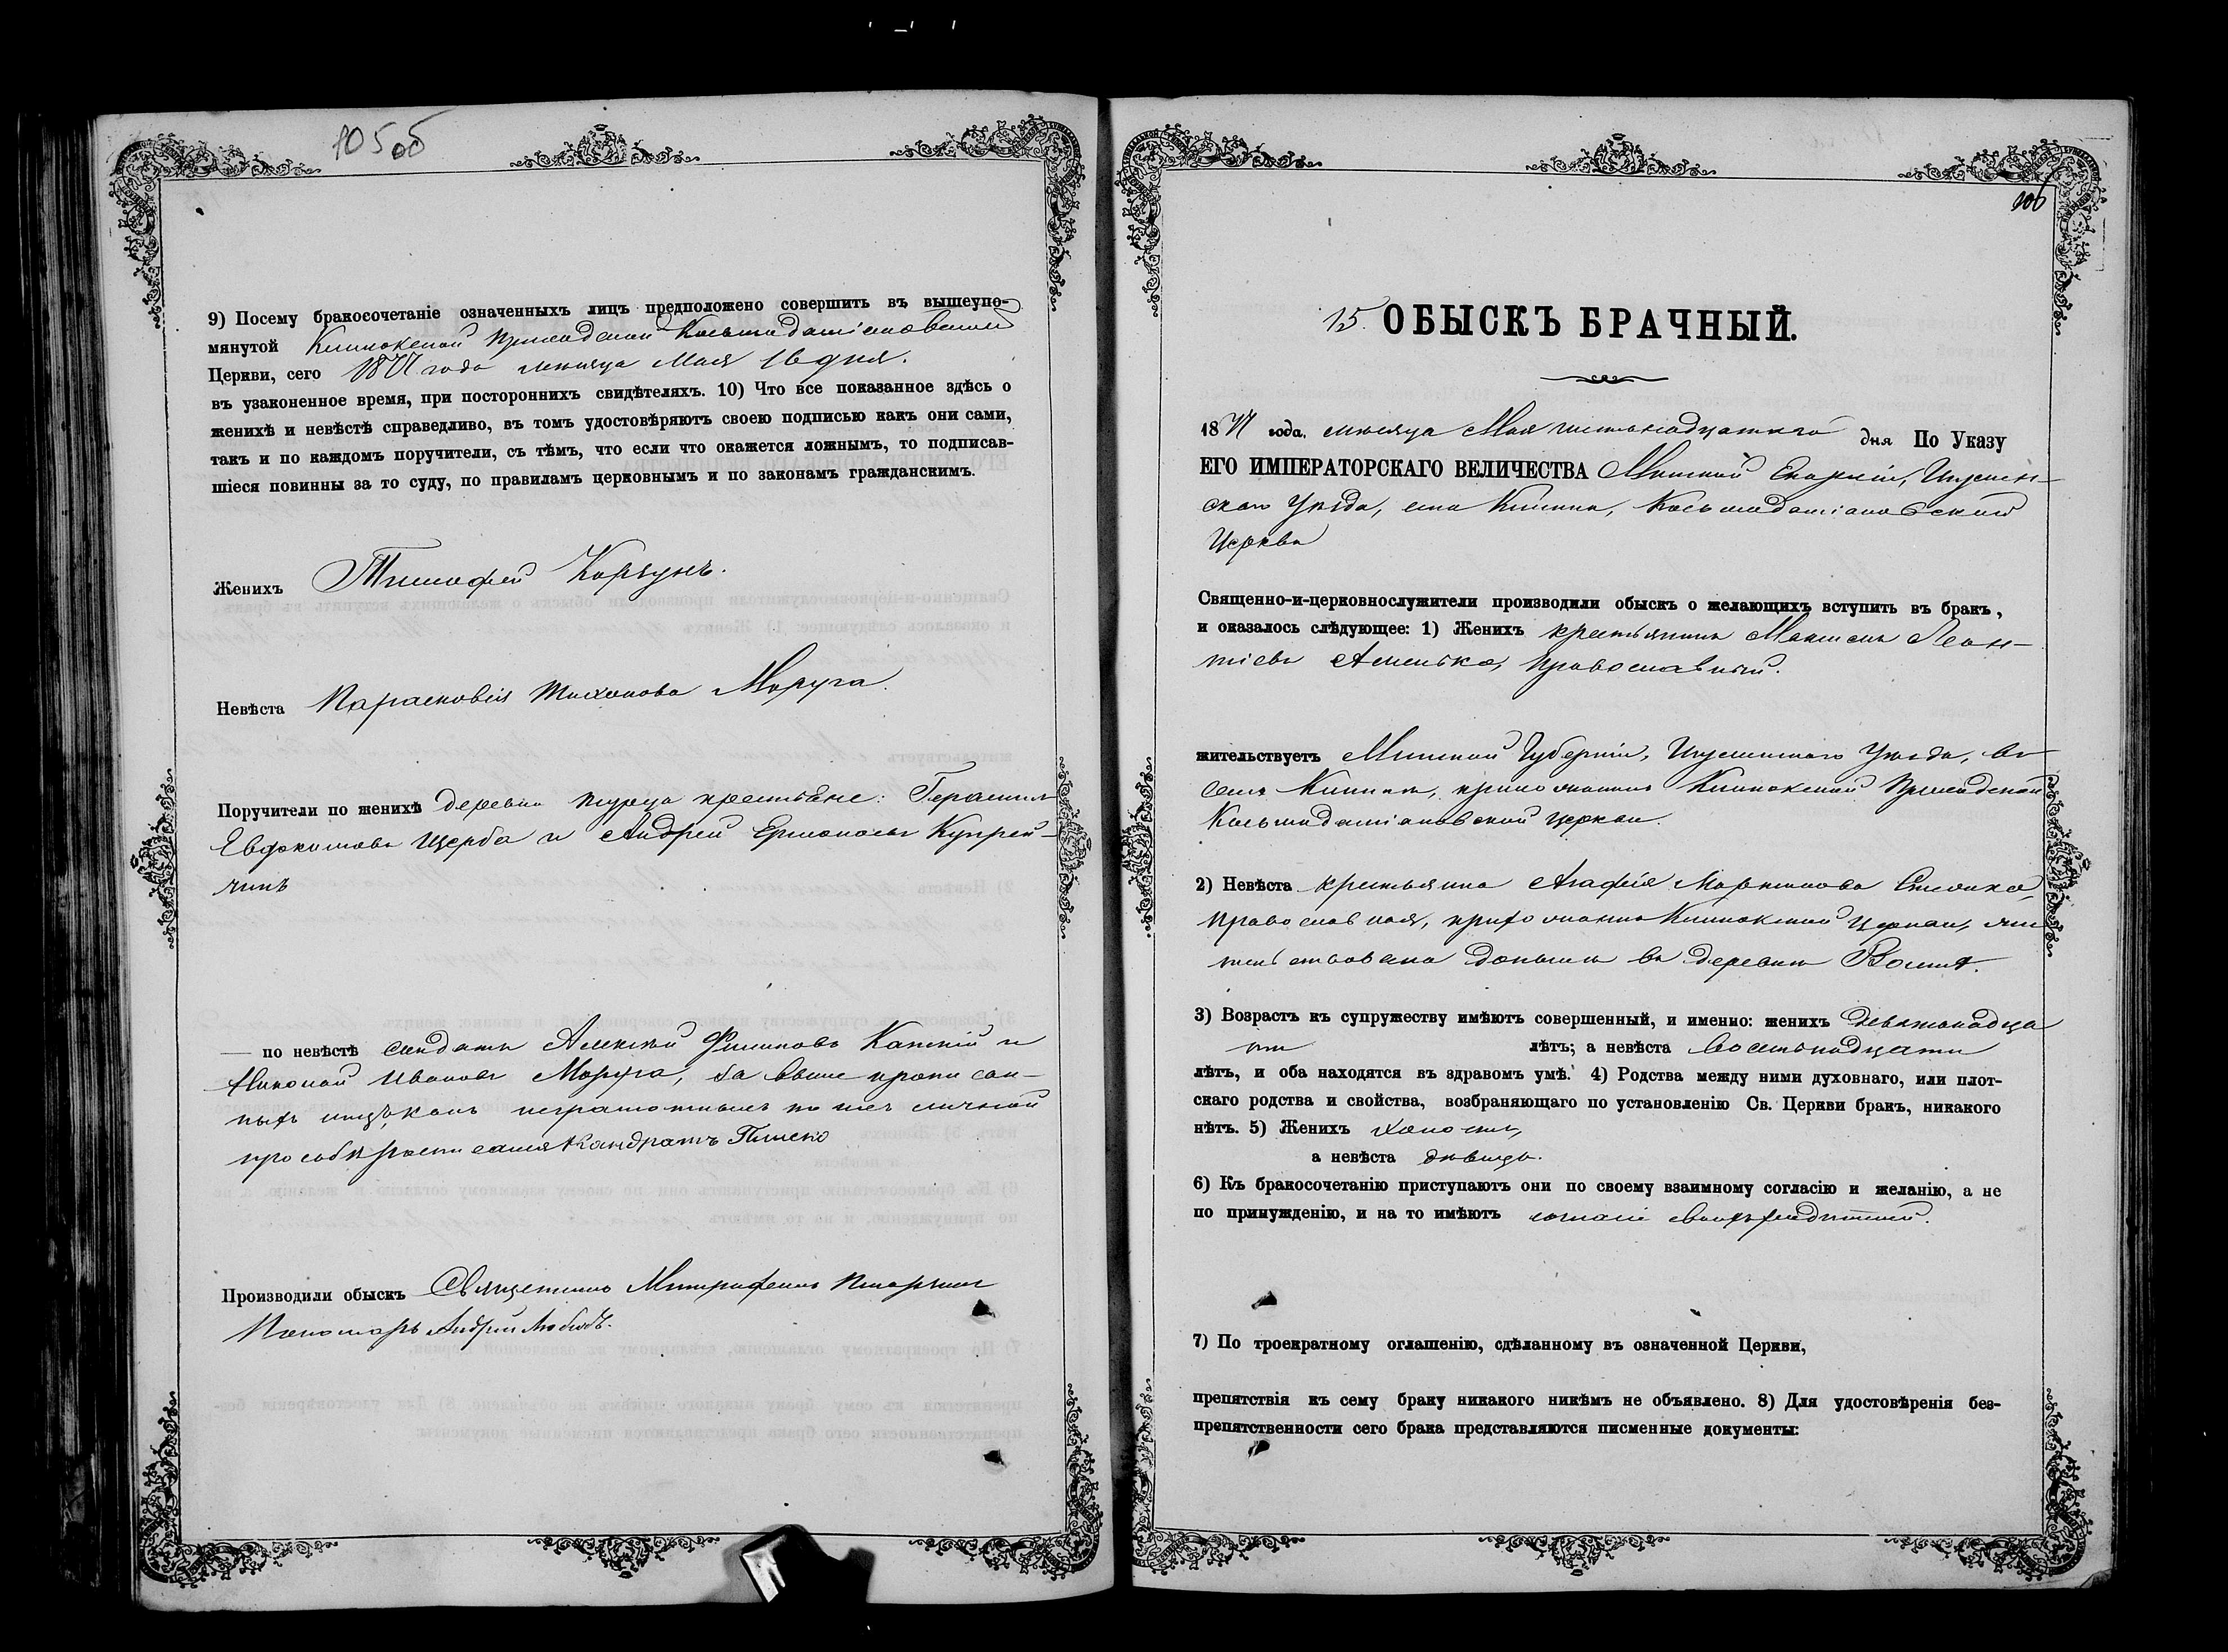 105 об
9) Посему бракосочетаніе означенныхъ лицъ предположено совершить въ вышеупо-
мянутой Клинокской Приходской Косьмодаміановской
Церкви, сего 1871 года месяца Мая 16 дня.
въ узаконенное время, при постороннихъ свидѣтеляхъ. 10) Что все показанное здѣсь о
женихѣ и невѣстѣ справедливо, въ томъ удостовѣряютъ своею подписью какъ они сами,
такъ и по каждомъ поручители, съ тѣмъ, что если что окажется ложнымъ, то подписав-
шіеся повинны за то суду, по правиламъ церковнымъ и по законамъ гражданскимъ.
Женихъ Тимофей Корзунъ.
Невѣста Парасковія Тихонова Моруга.
Поручители по женихѣ деревни крестьяне: Герасимъ
Евфимовъ Щерба и Андрей Купрей-
чикъ
— по невѣстѣ солдатъ Алексѣй Филиповъ и
Николай Ивановъ Моруга, за выше прописан-
ныхъ неграмотныхъ по ихъ личной
прозьбѣ росписался Кандратъ
Производили обыскъ Священникъ Митрофанъ
Пономарь Андрей
106
15. ОБЫСКЪ БРАЧНЫЙ.
1871 года. месяца Мая шестьнадцатаго дня По Указу
ЕГО ИМПЕРАТОРСКАГО ВЕЛИЧЕСТВА Минской Епархіи, Игумен-
скаго Уѣзда, села Клинокъ, Косьмодаміановской
Церкви
Священно-и-церковнослужители производили обыскъ о желающихъ вступить въ бракъ,
и оказалось слѣдующее: 1) Женихъ крестьянинъ Максимъ Леон-
тіевъ православный.
жительствуетъ Минской Губерніи, Игуменскаго Уѣзда, въ
селѣ прихожанинъ Клинокской Приходской
Косьмодаміановской церкви.
2) Невѣста крестьянка Агафія Мартинова
православная, прихожанка Клинокской церкви, жи-
тельствовала донынѣ въ деревни
3) Возрастъ къ супружеству имѣютъ совершенный, и именно: женихъ девятьнадца
ти лѣтъ; а невѣста восемьнадцати
лѣтъ, и оба находятся въ здравомъ умѣ. 4) Родства между ними духовнаго, или плот-
скаго родства и свойства, возбраняющаго по установленію Св. Церкви бракъ, никакого
нѣтъ. 5) Женихъ холостъ,
а невѣста дѣвица.
6) Къ бракосочетанію приступаютъ они по своему взаимному согласію и желанію, а не
по принужденію, и на то имѣютъ согласіе своихъ родителей.
7) По троекратному оглашенію, сдѣланному въ означенной Церкви,
препятствія къ сему браку никакого никѣмъ не объявлено. 8) Для удостовѣренія без-
препятственности сего брака представляются писменные документы: